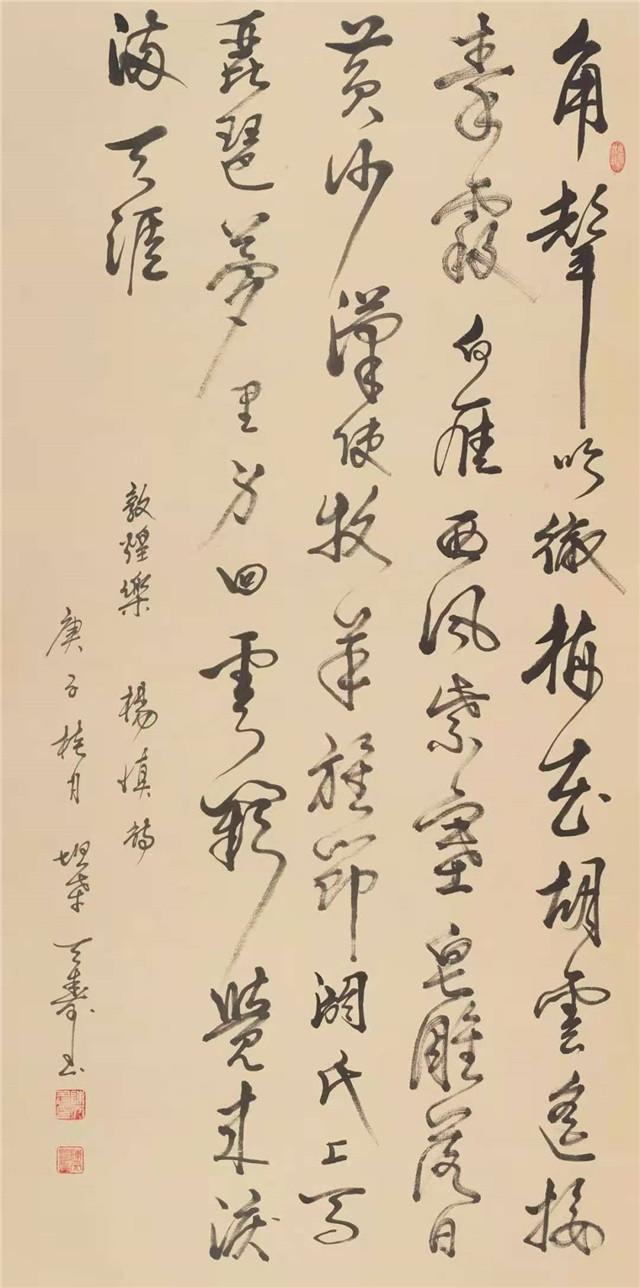 角聲吹徹梅花胡雲遙接
秦霞白雁西風紫塞皂雕落日
黄沙漢使牧羊旌節閼氏上馬
琵琶夢里身回雲闕覺来淚
滿天涯
敦煌樂 楊慎詩
庚子桂月 天壽书